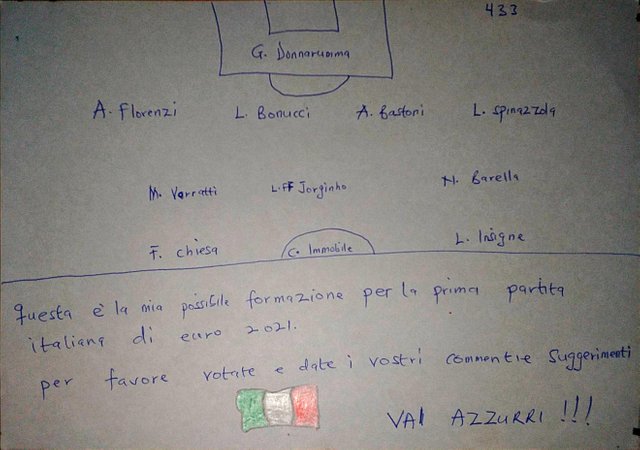 433
G. Donnarumma
A. Florenzi L. Bonucci A. Bastoni L. Spinazzola
M. Verratti L.FF Jorginho N. Barella
F. chiesa C. Immobile L. Insigne
questa è la mia possibile formazione per la prima partita
italiana di euro 2021.
per favore votate e date i vostri commenti e suggerimenti
VAI AZZURRI !!!